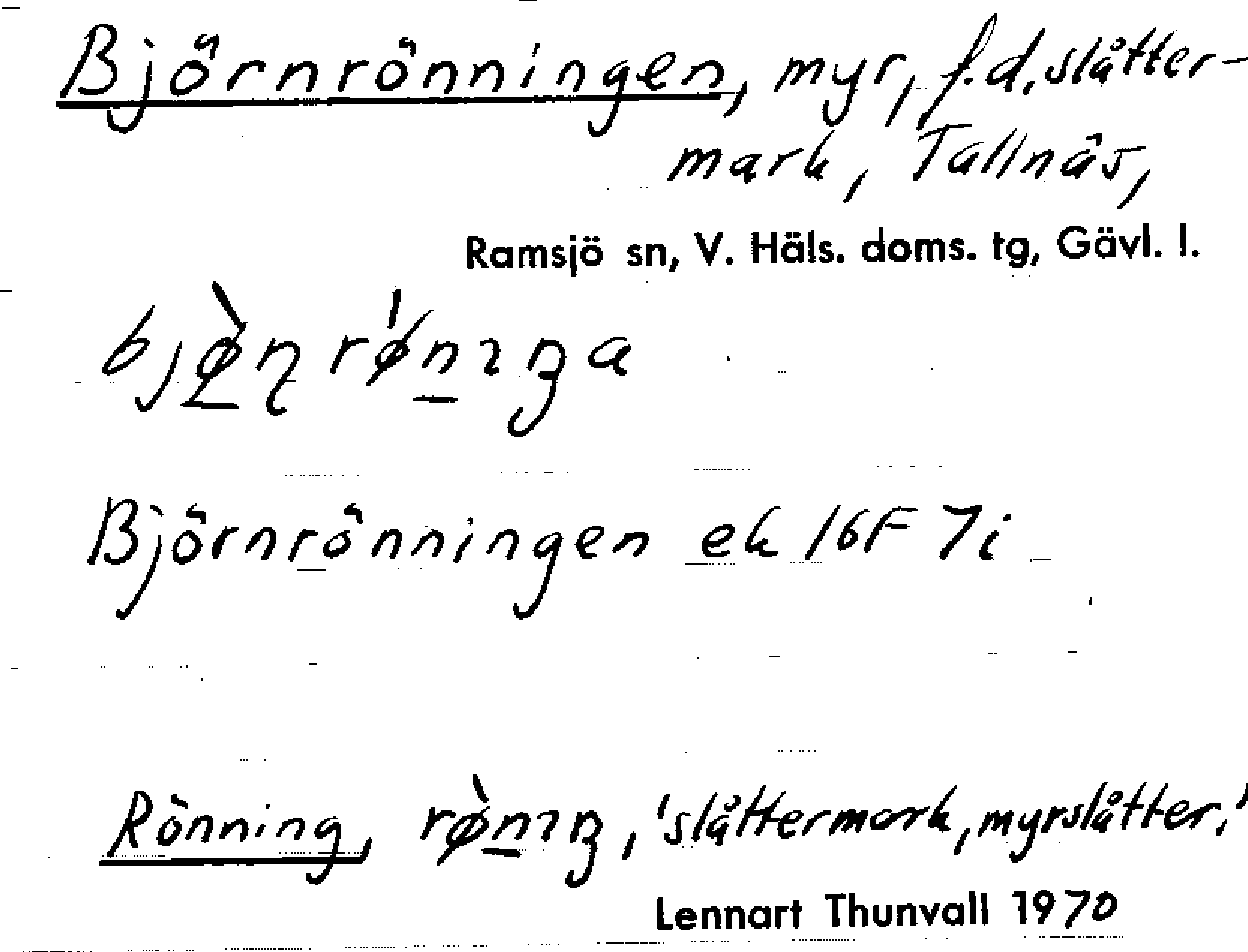 Björnrönningen, myr, f.d. slåtter-
mark, Tallnäs,
Ramsjö sn, V. Häls. doms. tg, Gävl. l.
Björnrönningen ek 16F 7i
Rönning, 'slåttermark, myrslåtter.'
Lennart Thunvall 1970